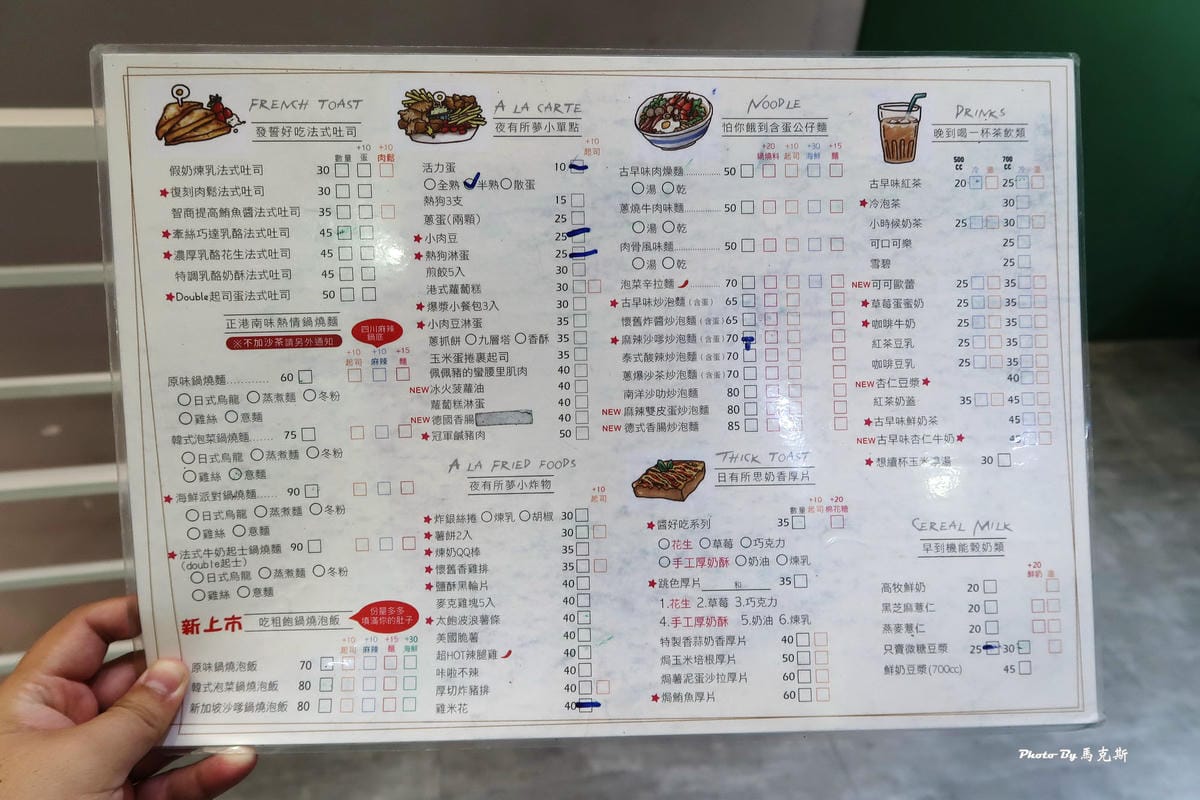 FRENCH TOAST
發誓好吃法式吐司
+10 +10
數量 蛋 肉鬆
假奶煉乳法式吐司 30
★復刻肉鬆法式吐司 30
智商提高鮪魚醬法式吐司 35
★牽絲巧達乳酪法式吐司 45
★濃厚乳酪花生法式吐司 45
特調乳酪奶酥法式吐司 45
★Double起司蛋法式吐司 50
正港南味熱情鍋燒麵
※不加沙茶請另外通知
四川麻辣鍋底
+10 +10 +15
起司 麻辣 麵
原味鍋燒麵............ 60
○日式烏龍 ○蒸煮麵 ○冬粉
○雞絲 ○意麵
韓式泡菜鍋燒麵....... 75
○日式烏龍 ○蒸煮麵 ○冬粉
○雞絲 ○意麵
★海鮮派對鍋燒麵..... 90
○日式烏龍 ○蒸煮麵 ○冬粉
○雞絲 ○意麵
★法式牛奶起士鍋燒麵 90
(double起士)
○日式烏龍 ○蒸煮麵 ○冬粉
○雞絲 ○意麵
新上市 吃粗飽鍋燒泡飯
份量多多
填滿你的肚子
+10 +10 +15 +30
起司 麻辣 麵 海鮮
原味鍋燒泡飯 70
韓式泡菜鍋燒泡飯 80
新加坡沙嗲鍋燒泡飯 80
A LA CARTE
夜有所夢小單點
+10
起司
活力蛋 10
○全熟 ○半熟 ○散蛋
熱狗3支 15
蔥蛋(兩顆) 25
★小肉豆 25
★熱狗淋蛋 25
煎餃5入 30
港式蘿蔔糕 30
★爆漿小餐包3入 30
★小肉豆淋蛋 35
蔥抓餅 ○九層塔 ○香酥 35
玉米蛋捲裹起司 35
佩佩豬的蠻腰里肌肉 40
NEW冰火菠蘿油 40
蘿蔔糕淋蛋 40
NEW德國香腸 40
★冠軍鹹豬肉 50
A LA FRIED FOODS
夜有所夢小炸物
+10
起司
★炸銀絲捲 ○煉乳 ○胡椒 30
★薯餅2入 30
★煉奶QQ棒 35
★懷舊香雞排 35
★鹽酥黑輪片 40
麥克雞塊5入 40
★太飽波浪薯條 40
美國脆薯 40
超HOT辣腿雞 40
咔啦不辣 40
厚切炸豬排 40
雞米花 40
NOODLE
怕你餓到含蛋公仔麵
+20 +10 +30 +15
鍋燒料 起司 海鮮 麵
古早味肉燥麵............ 50
○湯 ○乾
蔥燒牛肉味麵............ 50
○湯 ○乾
肉骨風味麵............... 50
○湯 ○乾
泡菜辛拉麵 70
★古早味炒泡麵 (含蛋) 65
懷舊炸醬炒泡麵 (含蛋) 65
★麻辣沙嗲炒泡麵 (含蛋) 70
泰式酸辣炒泡麵 (含蛋) 70
蔥爆沙茶炒泡麵 (含蛋) 70
南洋沙叻炒泡麵 80
NEW 麻辣雙皮蛋炒泡麵 80
NEW 德式香腸炒泡麵 85
THICK TOAST
日有所思奶香厚片
+10 +20
數量 起司 棉花糖
★醬好吃系列 35
○花生 ○草莓 ○巧克力
○手工厚奶酥 ○奶油 ○煉乳
★跳色厚片 ____和____ 35
1.花生 2.草莓 3.巧克力
4.手工厚奶酥 5.奶油 6.煉乳
特製香蒜奶香厚片 40
焗玉米培根厚片 50
焗薯泥蛋沙拉厚片 60
★焗鮪魚厚片 60
DRINKS
晚到喝一杯茶飲類
500 cc 700 cc
冷 溫 冷 溫
古早味紅茶 20 25
★冷泡茶 30
小時候奶茶 25 30
可口可樂 25
雪碧 25
NEW可可歐蕾 25 35
★草莓蛋蜜奶 25 35
★咖啡牛奶 25 35
紅茶豆乳 25 35
咖啡豆乳 25 35
NEW杏仁豆漿★ 40
紅茶奶蓋 35 45
★古早味鮮奶茶 45
NEW古早味杏仁牛奶★ 45
★想續杯玉米濃湯 30
CEREAL MILK
早到機能穀奶類
+20
鮮奶 溫
高牧鮮奶 20
黑芝麻薏仁 20
燕麥薏仁 20
只賣微糖豆漿 25 30
鮮奶豆漿(700cc) 45
Photo By 馬克斯